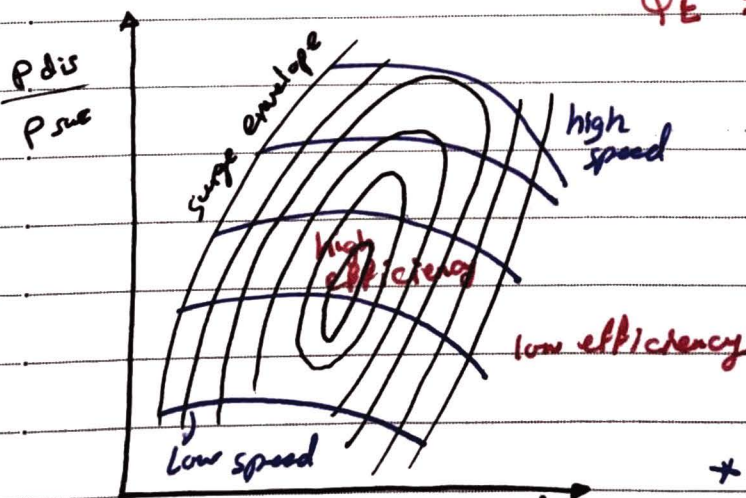 φE
P dis
P suc
surge envelope
high
speed
high
efficiency
low efficiency
Low speed
*